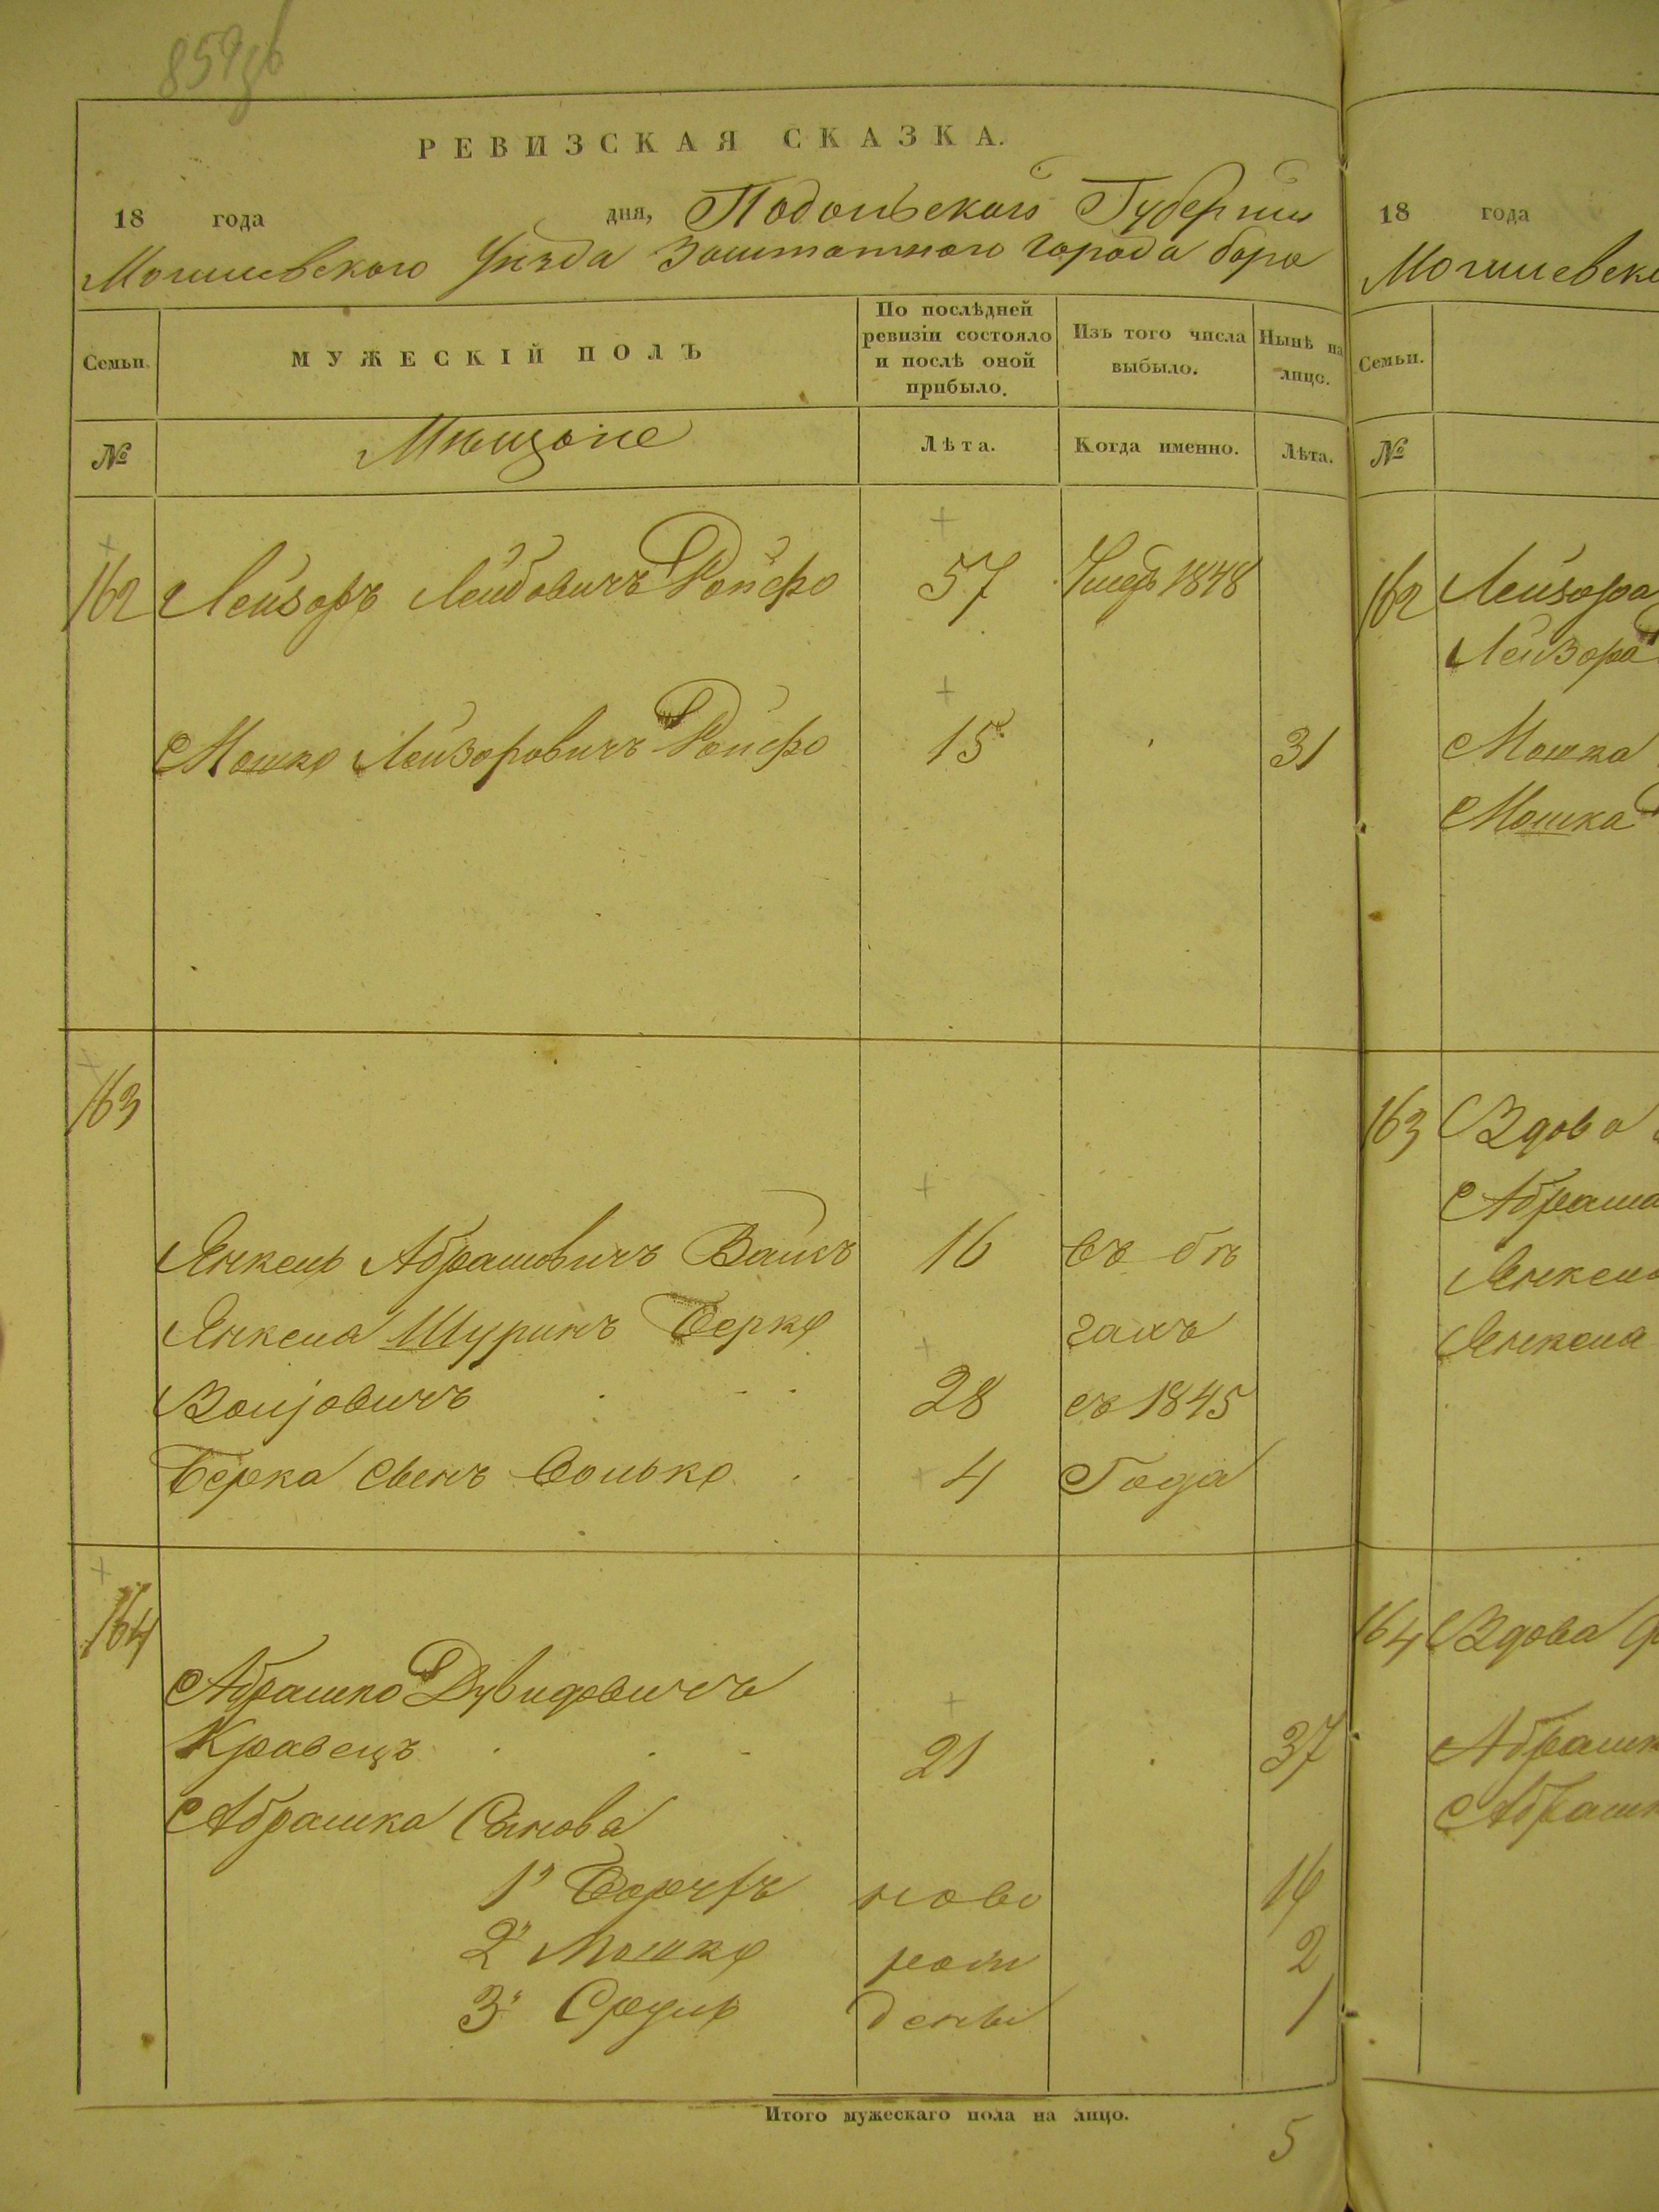 РЕВИЗСКАЯ СКАЗКА.
18 года дня, Подольской Губерніи
Могилевского Уезда Заштатного города бара
Семьи.
МУЖЕСКІЙ ПОЛЪ
По послѣдней ревизіи состояло и послѣ оной прибыло.
Изъ того числа выбыло.
Нынѣ на лицо.
№
Мѣщане
Лѣта.
Когда именно.
Лѣта.
162 Лейзоръ Лейбовичъ Ройфо 57 Умеръ 1848
Мошко Лейзоровичъ Ройфо 15 31
163
Янкель Абрамовичъ 16 Въ бѣ
Янкеля Шуринъ Берко гахъ
28 съ 1845
Берка Сынъ 4 Года
164
Абрашко Дувидовичъ
Кравецъ 21 37
Абрашка Сынова
1й ново
2й Мошко рож 2
3й Сруль дены 1
Итого мужескаго пола на лицо.
5
18 года
Могилевск
Семьи.
№
162 Лейзора
Лейзора
Мошка
Мошка
163 Вдова
Абрама
Янкель
Янкеля
164 Вдова
Абрашк
Абрашк